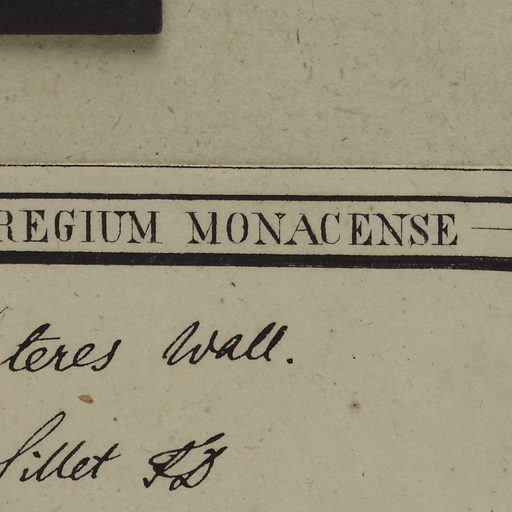 REGIUM MONACENSE
teres Wall.
Sillet